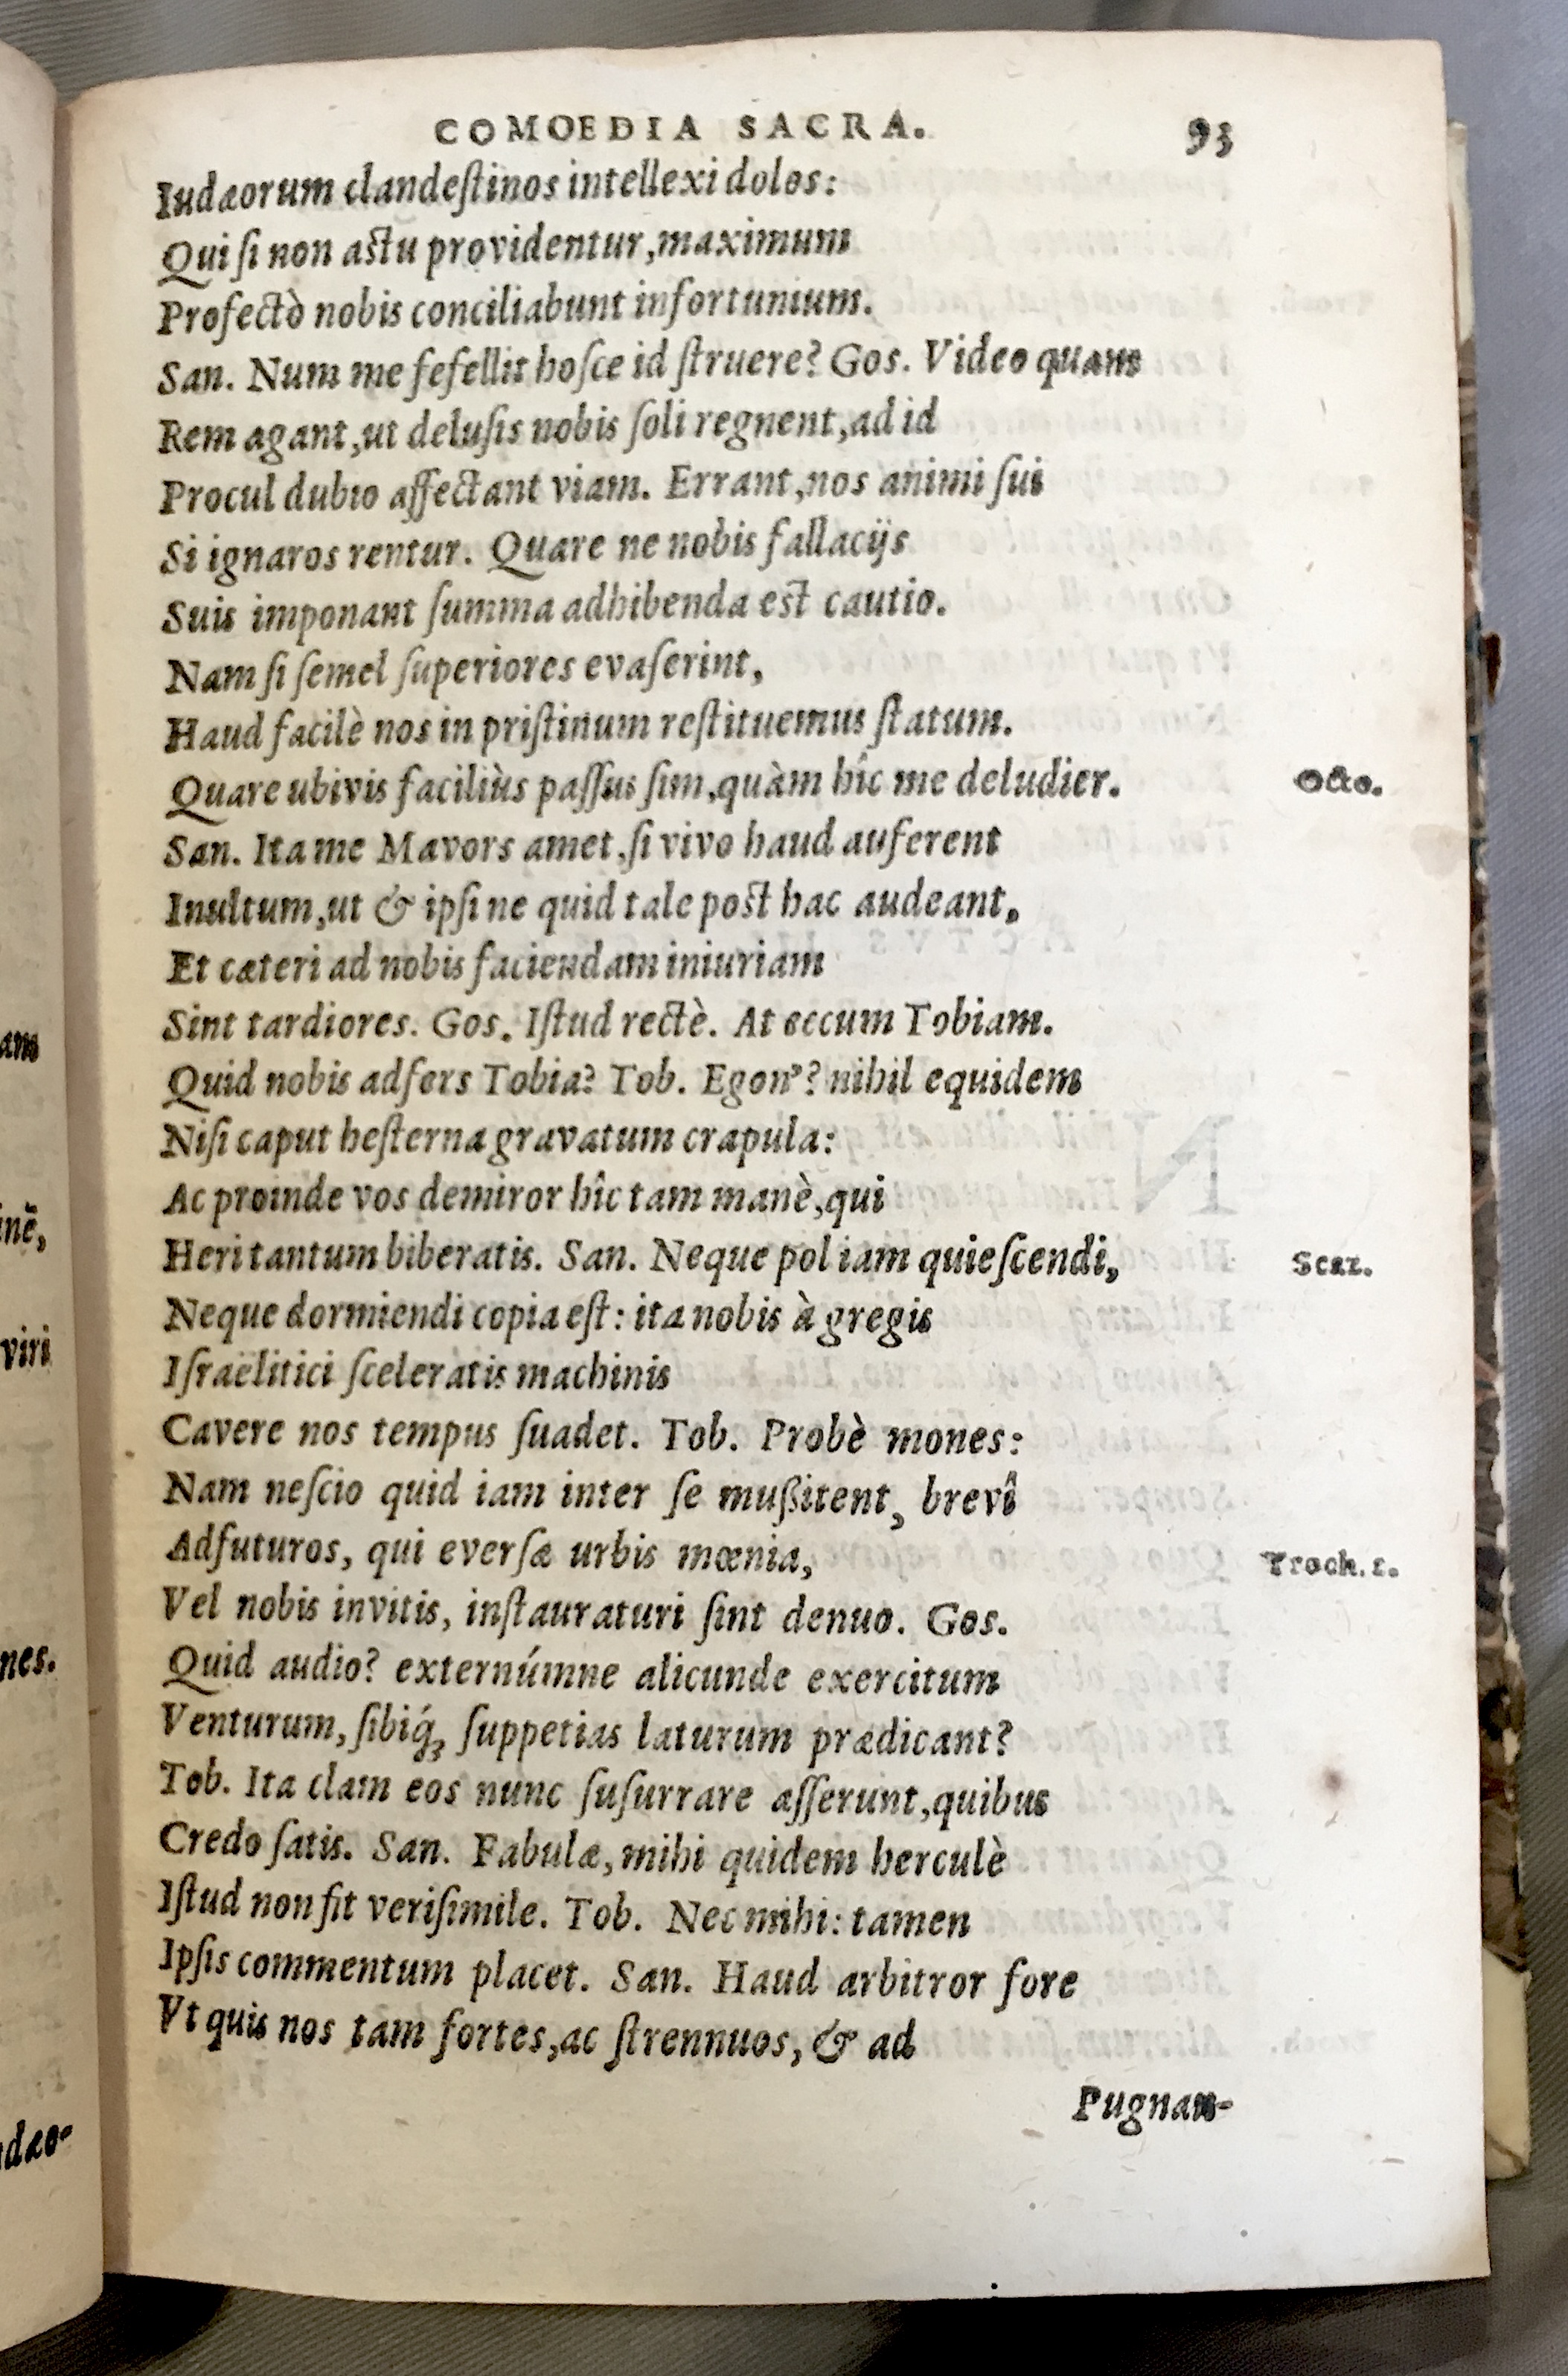 COMOEDIA SACRA. 93
Iudæorum clandeſtinos intellexi dolos:
Qui ſi non aſtu providentur, maximum
Profectò nobis conciliabunt infortunium.
San. Num me fefellit hoſce id ſtruere? Gos. Video quam
Rem agant, ut deluſis nobis ſoli regnent, ad id
Procul dubio affectant viam. Errant, nos animi ſui
Si ignaros rentur. Quare ne nobis fallacijs
Suis imponant ſumma adhibenda eſt cautio.
Nam ſi ſemel ſuperiores evaſerint,
Haud facilè nos in priſtinum reſtituemus ſtatum.
Quare ubivis faciliùs paſſus ſim, quàm hîc me deludier. Octo.
San. Ita me Mavors amet, ſi vivo haud auferent
Inultum, ut & ipſi ne quid tale poſt hac audeant,
Et cæteri ad nobis faciendam iniuriam
Sint tardiores. Gos. Iſtud rectè. At eccum Tobiam.
Quid nobis adfers Tobia? Tob. Egon'? nihil equidem
Niſi caput heſterna gravatum crapula:
Ac proinde vos demiror hîc tam manè, qui
Heri tantum biberatis. San. Neque pol iam quieſcendi, Scaz.
Neque dormiendi copia eſt: ita nobis à gregis
Iſraëlitici ſceleratis machinis
Cavere nos tempus ſuadet. Tob. Probè mones:
Nam neſcio quid iam inter ſe muſsitent, brevî
Adfuturos, qui everſæ urbis mœnia, Troch. t.
Vel nobis invitis, inſtauraturi ſint denuo. Gos.
Quid audio? externúmne alicunde exercitum
Venturum, ſibiq́; ſuppetias laturum prædicant?
Tob. Ita clam eos nunc ſuſurrare aſſerunt, quibus
Credo ſatis. San. Fabulæ, mihi quidem herculè
Iſtud non fit veriſimile. Tob. Nec mihi: tamen
Ipſis commentum placet. San. Haud arbitror fore
Vt quis nos tam fortes, ac ſtrennuos, & ad
Pugnan-
am
inē,
viri
nes.
dæo-